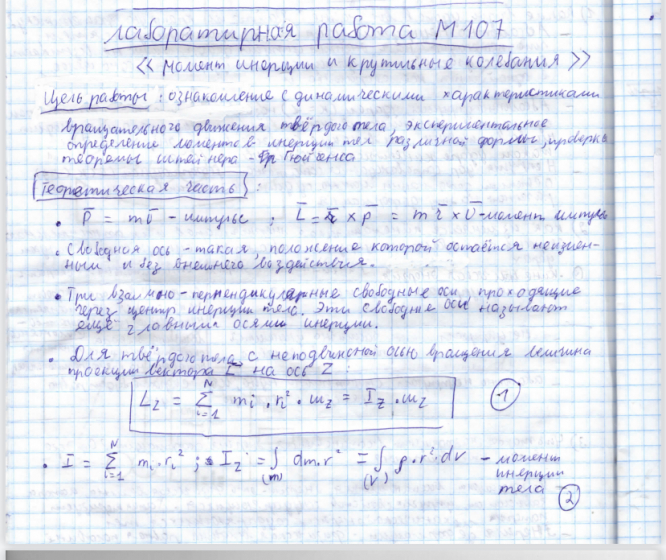 лабораторная работа М107
<< момент инерции и крутильные колебания >>
Цель работы : ознакомление с динамическими характеристиками
вращательного движения твёрдого тела, экспериментальное
определение моментов инерции тел различной формы, проверка
теоремы штейнера - Гюйгенса
Теоретическая часть :
• P̅ = mʋ̅ - импульс ; L̅ = r̅ × p̅ = m r̅ × ʋ̅ - момент импульса
• Свободная ось - такая, положение которой остаётся неизмен-
ным и без внешнего воздействия.
• Три взаимно-перпендикулярные свободные оси, проходящие
через центр инерции тела. Эти свободные оси называют
ещё главными осями инерции.
• Для твёрдого тела с неподвижной осью вращения величина
проекции вектора L̅ на ось Z :
L_z = Σ_{i=1}^{N} m_i · r_i² · ω_z = I_z · ω_z (1)
• I = Σ_{i=1}^{N} m_i · r_i² ; I_z = ∫_(m) dm · r² = ∫_(V) ρ · r² · dV - момент
инерции
тела (2)